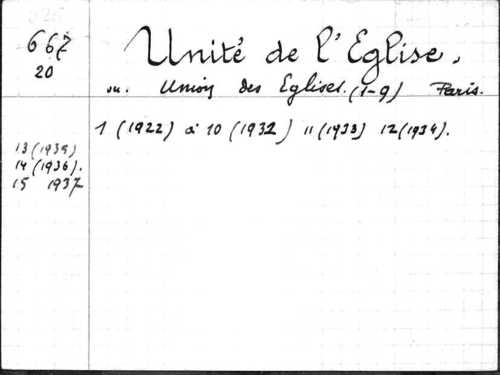 667
20
Unité de l'Eglise.
ou. Union des Eglises. (1-9) Paris.
1 (1922) à 10 (1932) 11 (1933) 12 (1934).
13 (1935)
14 (1936).
15 1937